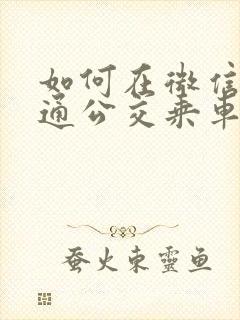 如何在微信
通公交乘車
蚕火東靈鱼